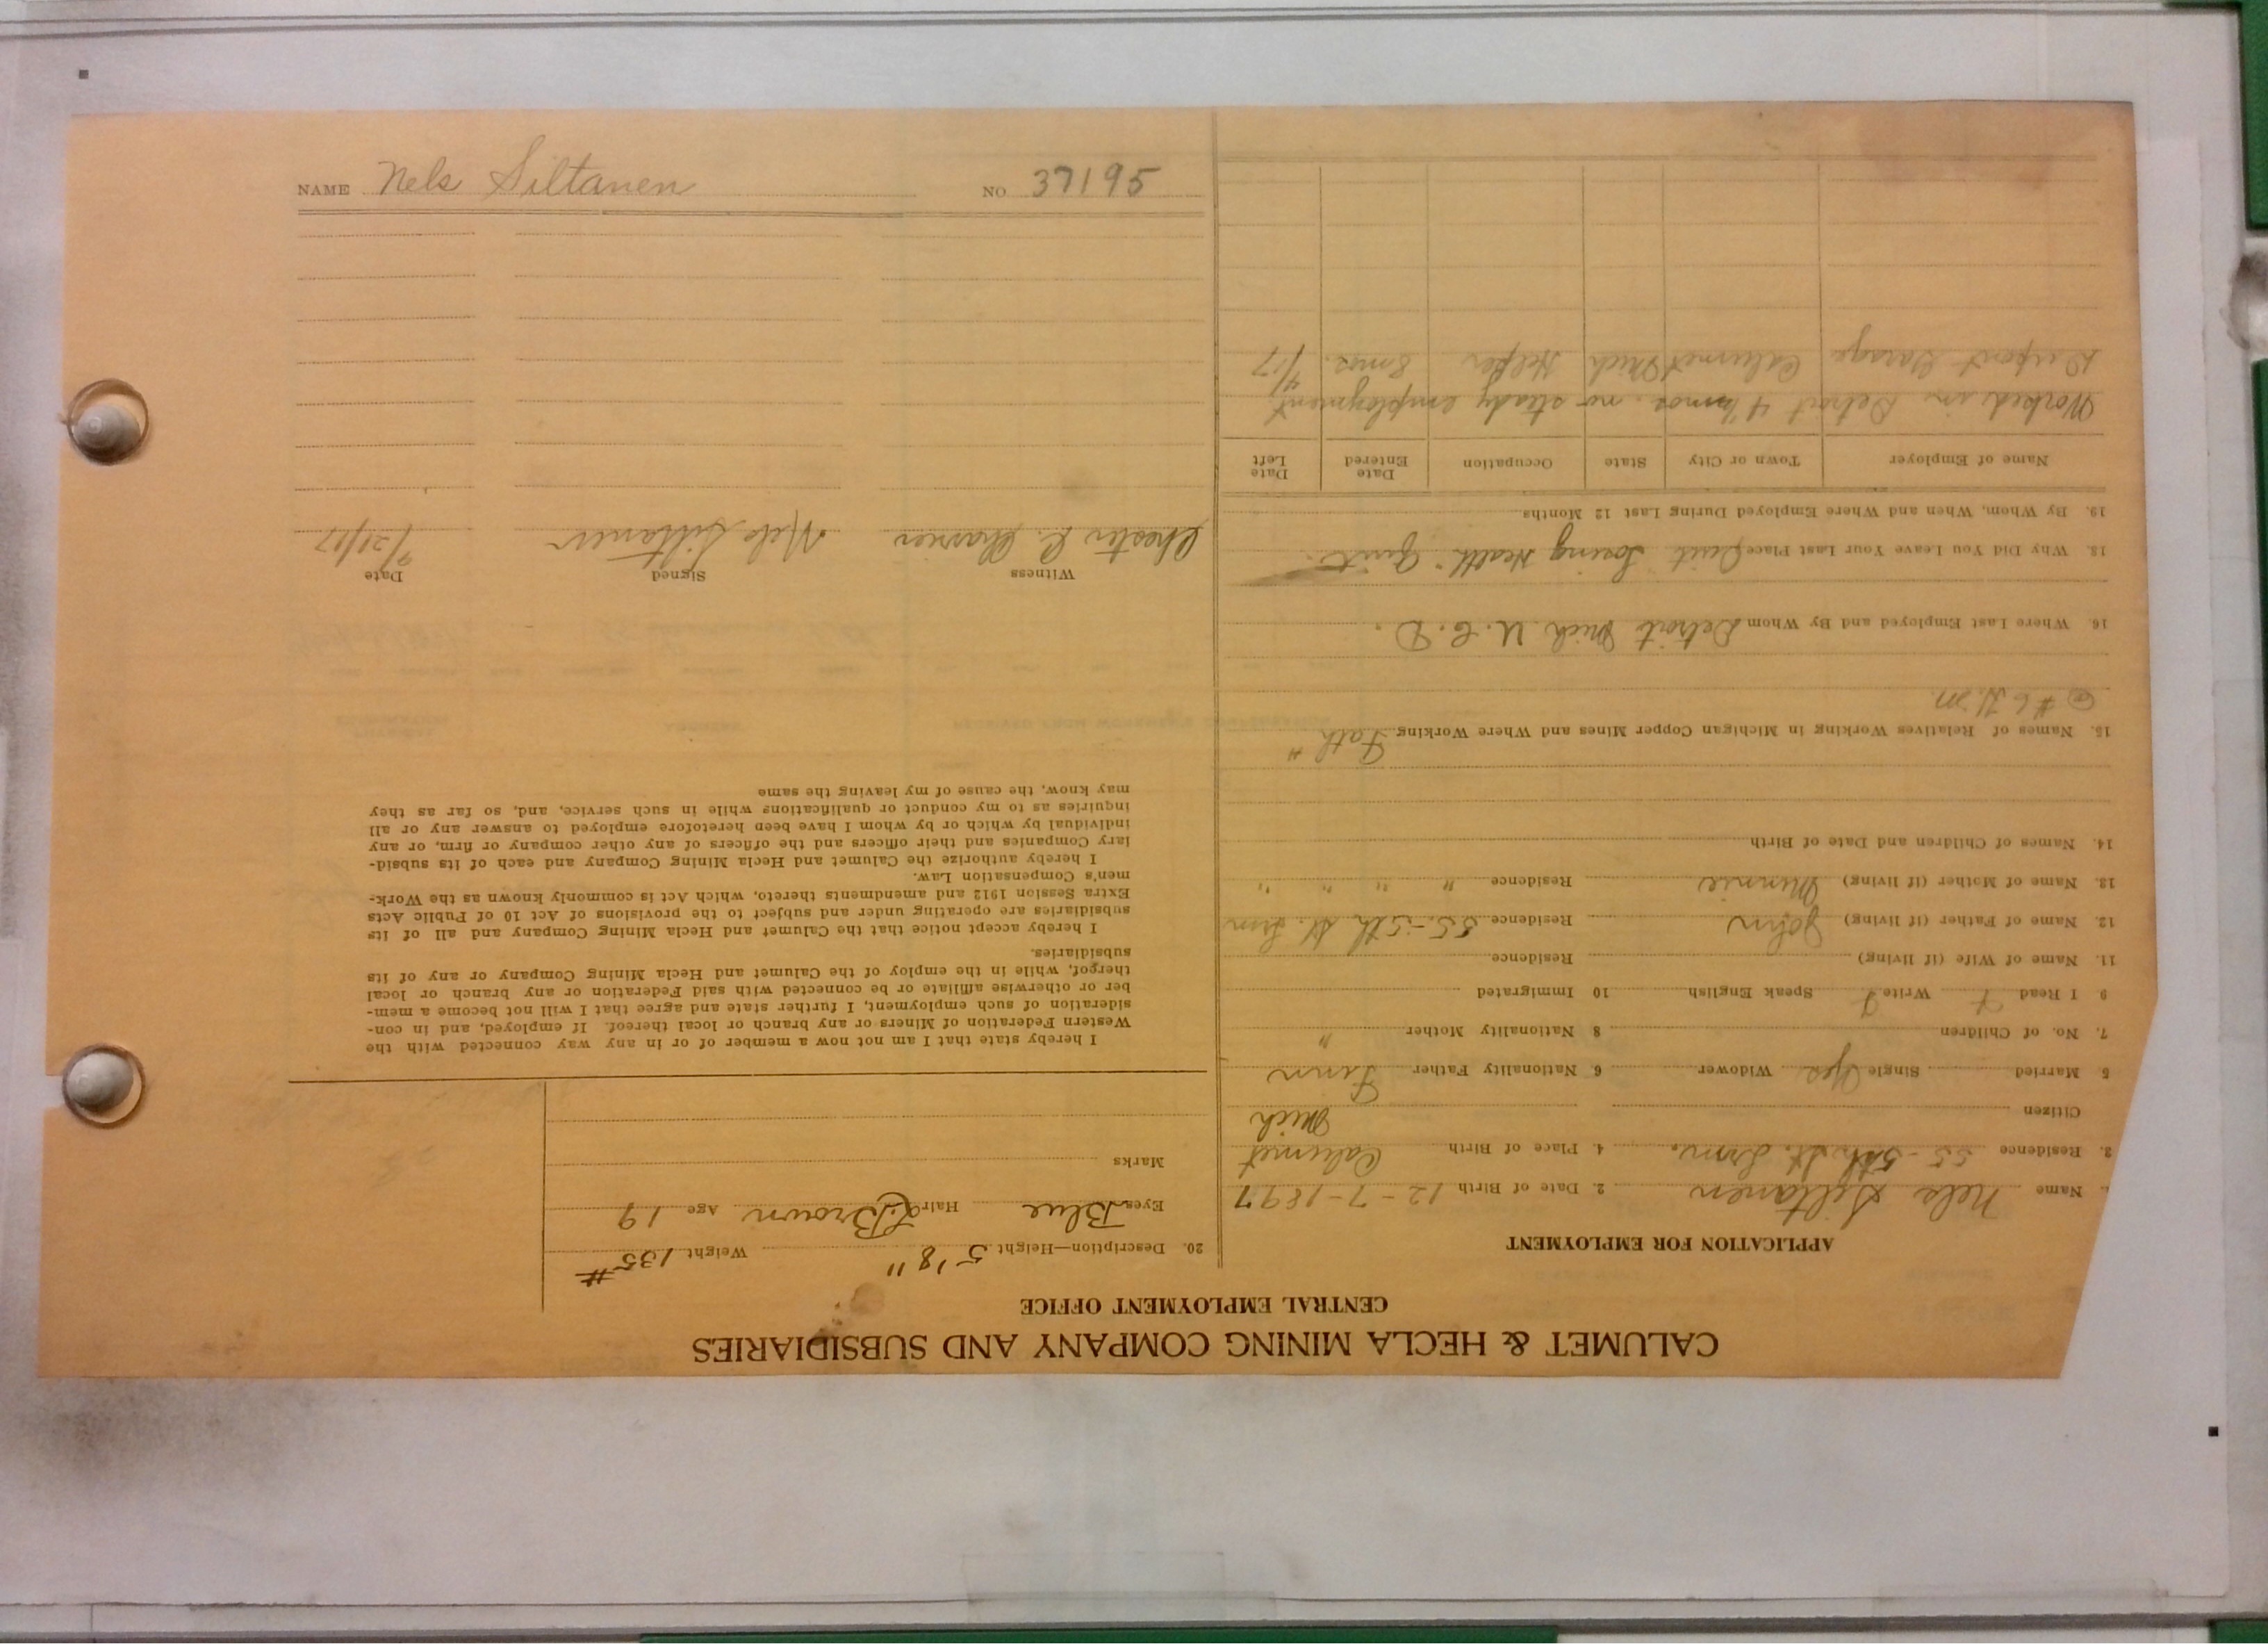 CALUMET & HECLA MINING COMPANY AND SUBSIDIARIES
CENTRAL EMPLOYMENT OFFICE
APPLICATION FOR EMPLOYMENT
Name Nels Siltanen 2. Date of Birth 12-7-1897
3. Residence 55-5th St. Lrm. 4. Place of Birth Calumet
Citizen Mich
5 Married Single Yes Widower 6. Nationality Father Finn
7. No. of Children 8 Nationality Mother "
9 I Read Write Speak English 10 Immigrated
11. Name of Wife (if living) Residence
12. Name of Father (if living) John Residence 55-5th St. Lrm
13. Name of Mother (if living) Minnie Residence " " " "
14. Names of Children and Date of Birth
15. Names of Relatives Working in Michigan Copper Mines and Where Working Fath "
@ #6 H.M.
16. Where Last Employed and By Whom Detroit Mich U.C.D.
18. Why Did You Leave Your Last Place Quit Losing Health Quit.
19. By Whom, When and Where Employed During Last 12 Months
Name of Employer Town or City State Occupation Date Entered Date Left
Worked in Detroit 4 mos. no steady employment
Dupont Garage Calumet Mich Helper 8 mos. 4/17
20. Description—Height 5'8" Weight 135#
Eyes Blue Hair L Brown Age 19
Marks
I hereby state that I am not now a member of or in any way connected with the
Western Federation of Miners or any branch or local thereof. If employed, and in con-
sideration of such employment, I further state and agree that I will not become a mem-
ber or otherwise affiliate or be connected with said Federation or any branch or local
thereof, while in the employ of the Calumet and Hecla Mining Company or any of its
subsidiaries.
I hereby accept notice that the Calumet and Hecla Mining Company and all of its
subsidiaries are operating under and subject to the provisions of Act 10 of Public Acts
Extra Session 1912 and amendments thereto, which Act is commonly known as the Work-
men's Compensation Law.
I hereby authorize the Calumet and Hecla Mining Company and each of its subsid-
iary Companies and their officers and the officers of any other company or firm, or any
individual by which or by whom I have been heretofore employed to answer any or all
inquiries as to my conduct or qualifications while in such service, and, so far as they
may know, the cause of my leaving the same
Witness Signed Date
Chester R. Nels Siltanen 9/21/17
NAME Nels Siltanen NO. 37195